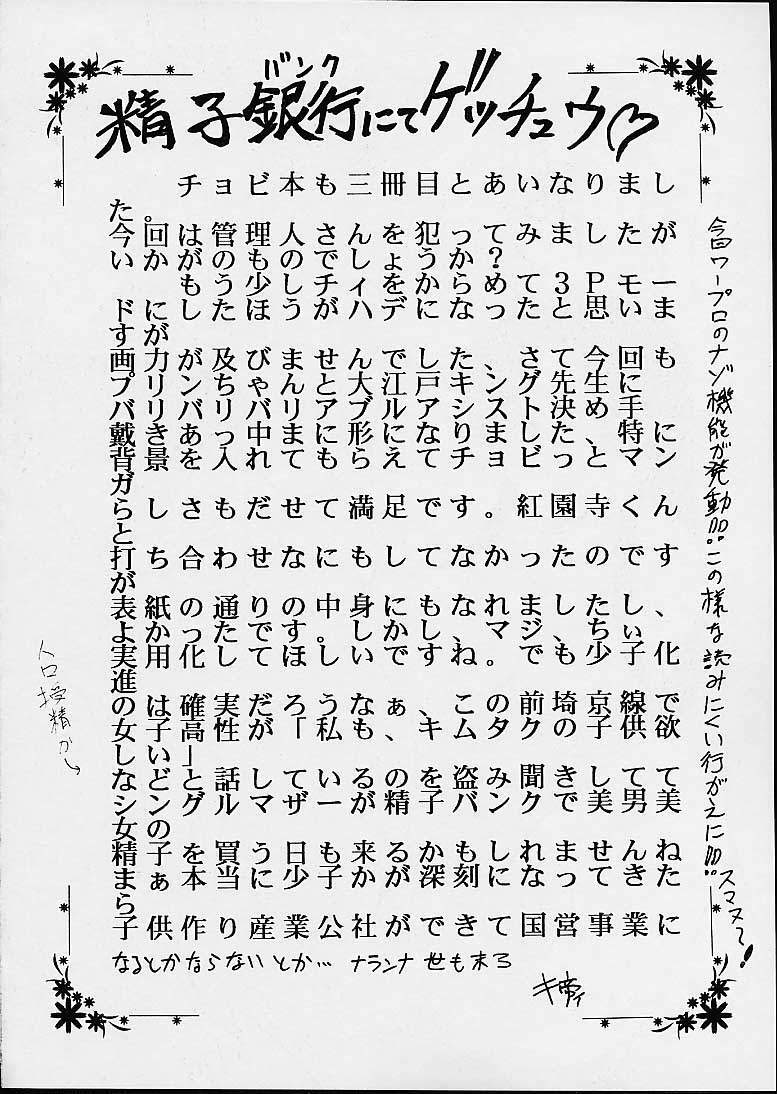 バンク
精子銀行にてゲッチュウ♡
チョビ本も三冊目とあいなりまし
た。
今回は管理人さんを犯ってみましたが
いかがのものでしょうか?
もう少しチィをからめた3Pモー
ドにしたほうがハデになったと思いま
すが
画力が及びませんでした、さて今回も
プリンちゃんと大江戸キング先生に
バリバリバリアブルアシスト決め手
戴きあっ中まに形になりました、特に
背景を入れてもらえてチョビっとマン
ガ
らしさもだせて満足です。紅園寺くん
と
打ち合わせなにもしてなかったのです
が
表紙の通りの中身にもなれましたし、
よかったです。しかし、マジでちぃ
実用化してほしいですね。も少子化
進
の は確実だろうなぁ、この前埼京線で
女子高性が「私も、キムタクの子供欲
しい」
などと、話しているのを盗み聞きしてて
シングルマザーが精子バンクで美男美
女の
精子を買う日も来るかもしれませんね
まぁ本当に少子かが深刻になってきた
ら
子供作り産業公社ができて国営事業に
なるとかならないとか… ナランナ 世も末ろ
今回ワープロのナゾ機能が発動!!! この様な読みにくい行がえに!!! スマヌ〜!
人口受精か